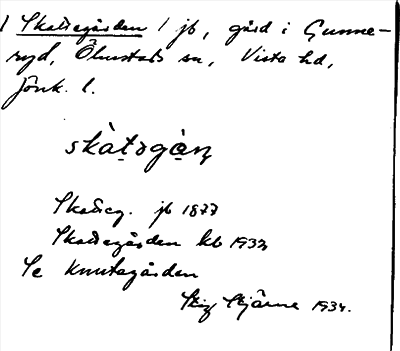 1 Skattegården 1 jb, gård i Gunne-
ryd, Ölmstads sn, Vista hd,
Jönk. l.
skàt̬əgàṇ
Skatteg. jb 1877
Skattegården kb 1932
Se Knutagården
Stig Stjärne 1934.